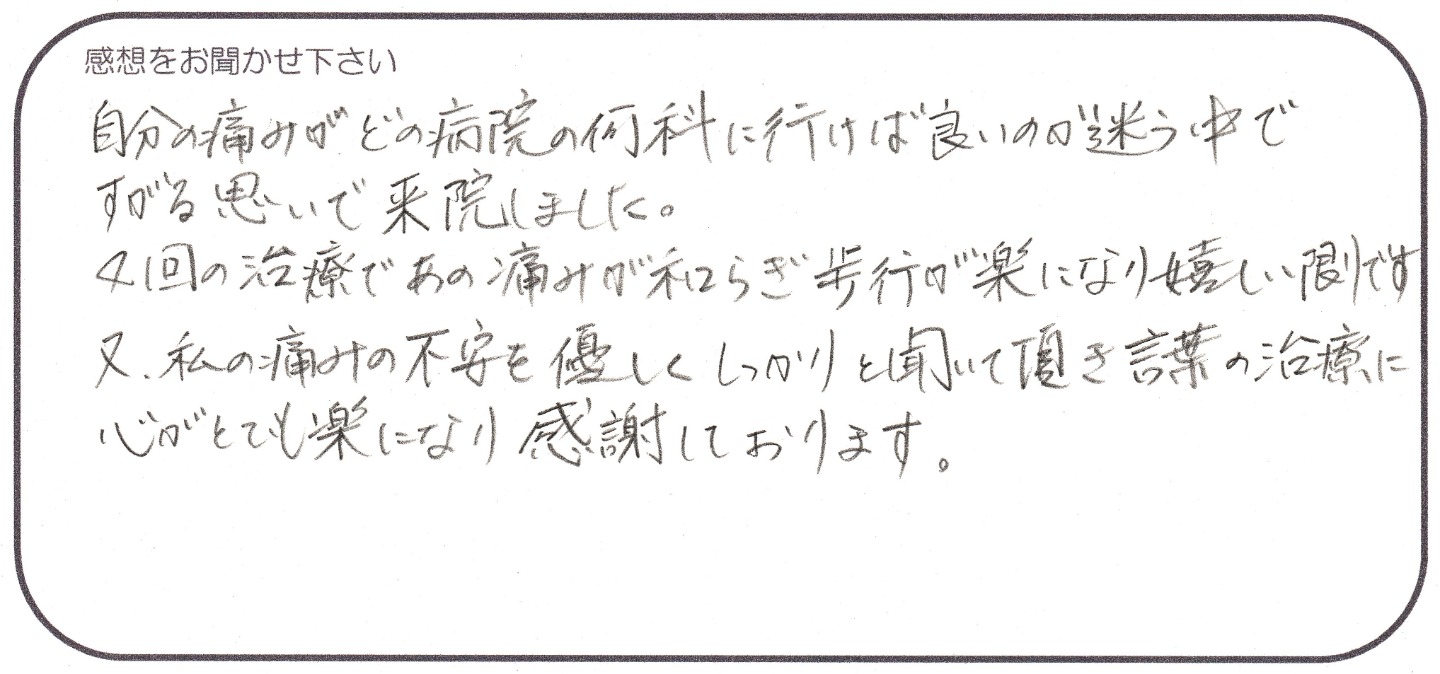 感想をお聞かせ下さい
自分の痛みがどの病院の何科に行けば良いのか迷う中で
すがる思いで来院しました。
4回の治療であの痛みが和らぎ歩行が楽になり嬉しい限りです
又、私の痛みの不安を優しくしっかりと聞いて頂き言葉の治療に
心がとても楽になり感謝しております。